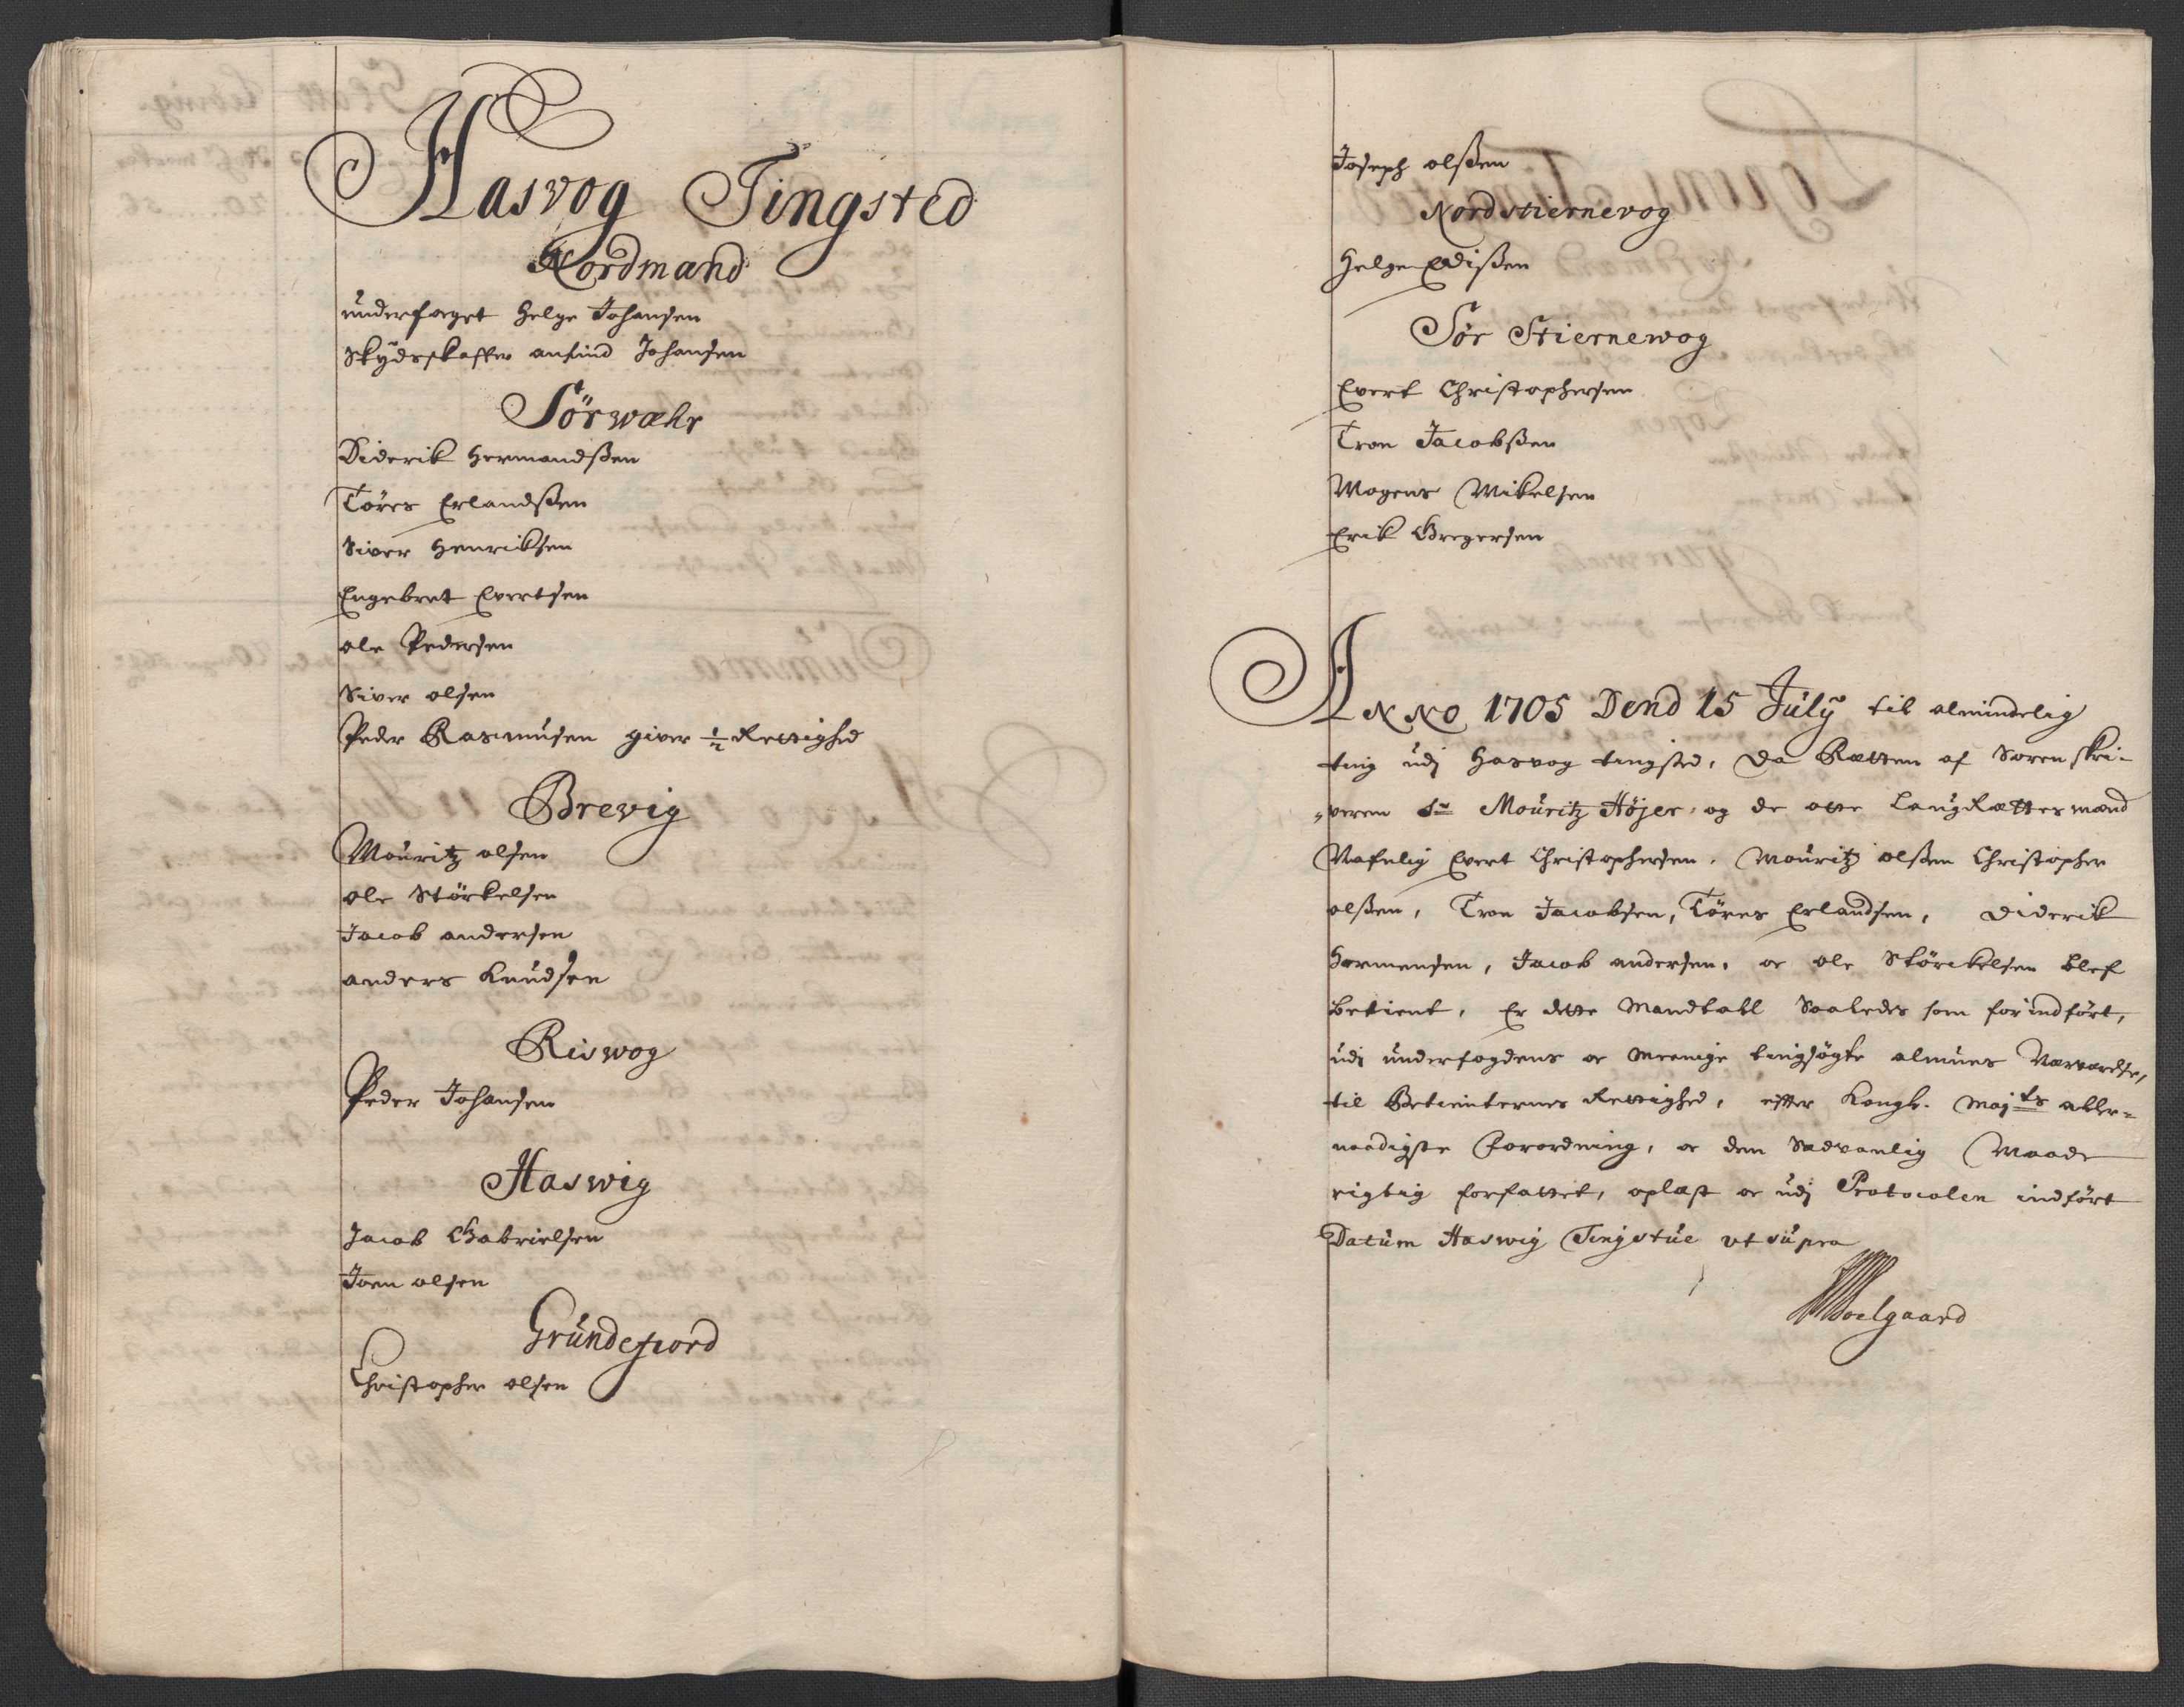 Hasvog Tingsted
Nordmand
underfoget Helge Johansen
Skydsskaffer anfind Johansen
Sörwæhr
Diderik Hermandsßen
Törres Erlandsßen
Siver Henriksen
Engebret Evertsen
ole Pedersen
Siver olsen
Peder Rasmusen giver 1/2 Rettighed
Brevig
Mouritz olsen
ole Störkelsen
Jacob andersen
anders Knudsen
Riswog
Peder Johansen
Haswig
Jacob Gabrielsen
Joen olsen
Gründefiord
Christopher olsen
Joseph olsßen
Nordstiernevog
Helge Edisßen
Sör Stiernewog
Evert Christophersen
Tron Jacobsßen
Mogens Mikelsen
Erik Gregersen
ANNO 1705 Dend 15 July til almindelig
ting udj Hasvog tingsted, da Rætten af Sorenskri-
"veren Sr Mouritz Höjer, og de otte LaugRættesmænd
Nafnlig Evert Christophersen, Mouritz olsßen Christopher
olsßen, Tron Jacobsen, Törres Erlandsen, Diderik
Hermensen, Jacob andersen, oc ole Störckelsen blef
betient, Er dette Mandtall Saaledes som forindfört,
udj underfogdens oc Meenige tingsögte almues Nærværelse,
til Betienternes Rettighed, efter Kongl. Majts aller-
naadigste forordning, oc den Sædvanlig Maade
rigtig forfattet, oplæst oc udj Protocolen indfört
Datum Haswig Tingstue vt supra
Soelgaard